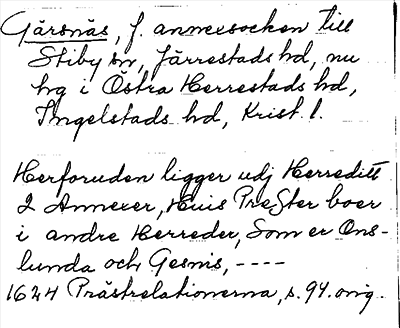 Gärsnäs, f. annexsocken till
Stiby sn, Järrestads hd, nu
hg i Östra Herrestads hd,
Ingelstads hd, Krist. l.
Herforuden ligger udj Herreditt
2 Annexer, Huis Prester boer
i andre Herreder, Som er Ons-
lunda och Gesnis, ----
1624 Prästrelationerna, s. 94. orig.